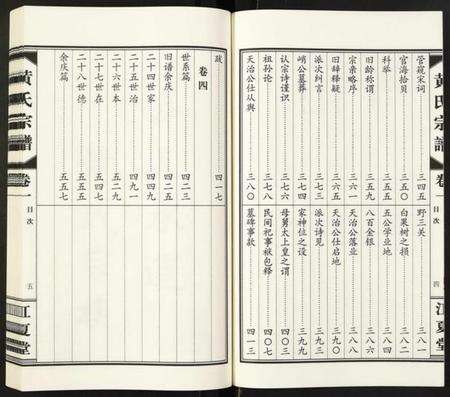 黄氏宗谱
卷一
目次
四
江夏堂
管窥宋词 三四五
官海拾贝 三五〇
科举 三五五
旧龄称谓 三五九
宗亲略序 三六一
旧辞释疑 三六五
派次纠言 三七三
峭公墓葬 三七四
认宗诗谨识 三七六
祖孙论 三七八
天治公仕从舆 三八〇
野三关 三八一
白果树之损 三八二
五公学业地 三八四
八百金银 三八六
天治公落业 三八八
天治公仕启地 三九〇
派次诗见 三九三
家神位之设 三九九
母舅太上皇之谓 四〇三
民间祀事袱包释 四〇七
墓碑事款 四一三
跋 四一七
卷四
世系篇 四二三
旧谱余庆 四二五
二十四世家 四二九
二十五世治 四九一
二十六世本 五二九
二十七世在 五四七
二十八世德 五五五
余庆篇 五五七
黄氏宗谱
卷一
目次
五
江夏堂